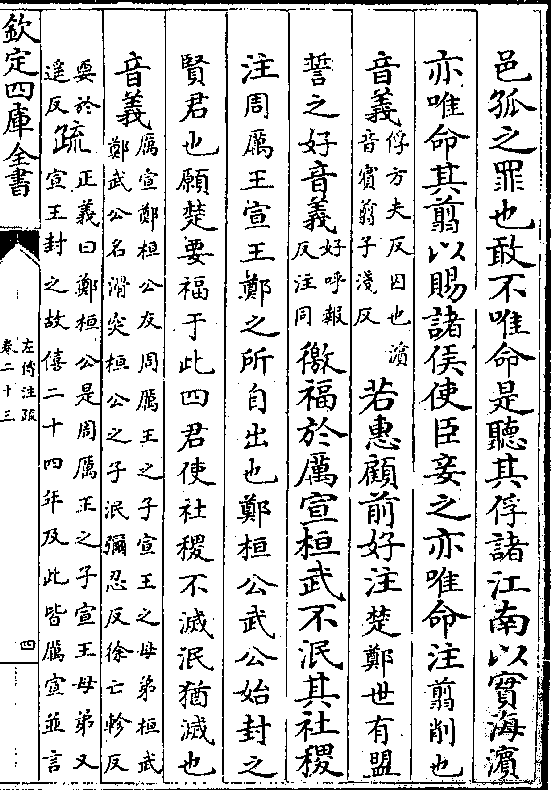 邑孤之罪也敢不唯命是聽其俘諸江南以實海濱
亦唯命其翦以賜諸侯使臣妾之亦唯命注翦削也
音義俘方夫反囚也濱
音賓翦子淺反
若惠顧前好注楚鄭世有盟
誓之好音義好呼報
反注同
徼福於厲宣桓武不泯其社稷
注周厲王宣王鄭之所自出也鄭桓公武公始封之
賢君也願楚要福于此四君使社稷不滅泯猶滅也
音義厲宣鄭桓公友周厲王之子宣王之母弟桓武
鄭武公名滑突桓公之子泯彌忍反徐亡軫反
要於
遥反
疏正義曰鄭桓公是周厲王之子宣王母弟又
宣王封之故僖二十四年及此皆厲宣並言
欽定四庫全書
左傳注疏
卷二十三
四